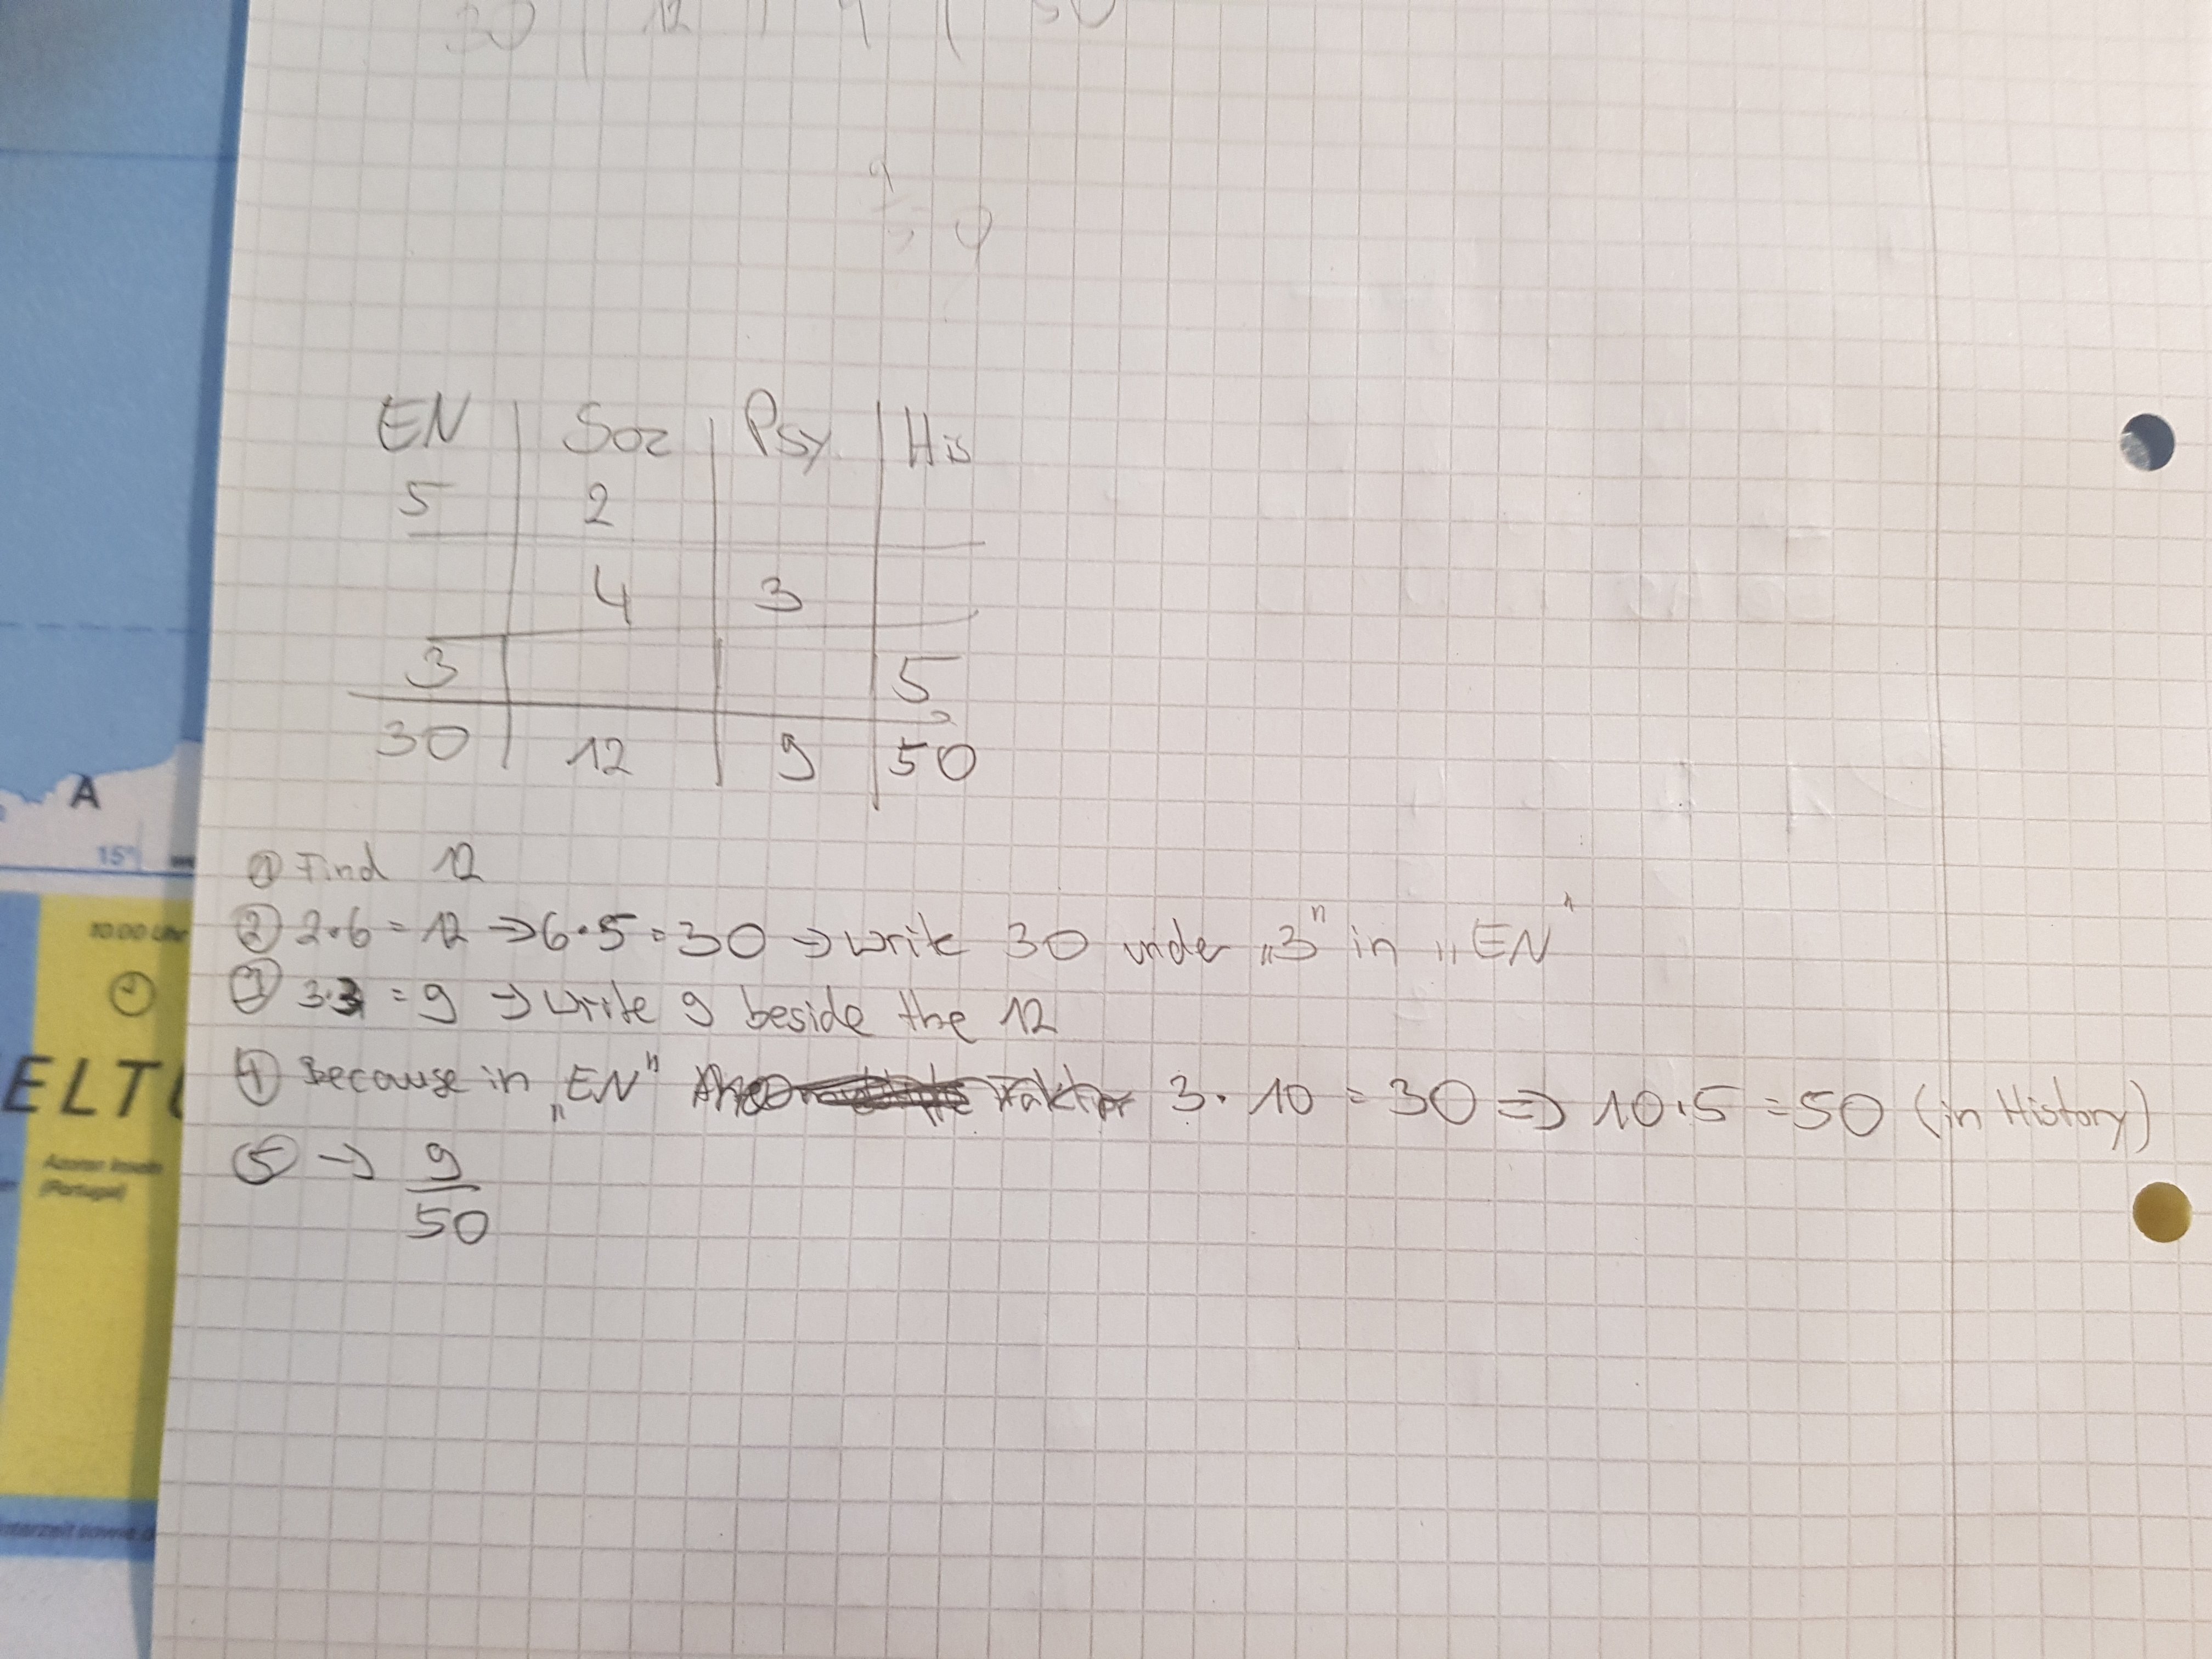 30 | 12 | 9 | 50
9
50
EN | Soz | Psy. | His
5 | 2
4 | 3
3 | 5
30 | 12 | 9 | 50
A
15°
① Find 12
② 2·6 = 12 → 6·5 = 30 → write 30 under „3" in „EN"
10.00 Uhr
③ 3·3 = 9 → write 9 beside the 12
④ Because in „EN" Faktor 3·10 = 30 ⇒ 10·5 = 50 (in History)
ELT
⑤ → 9
50
Azoren Inseln
(Portugal)